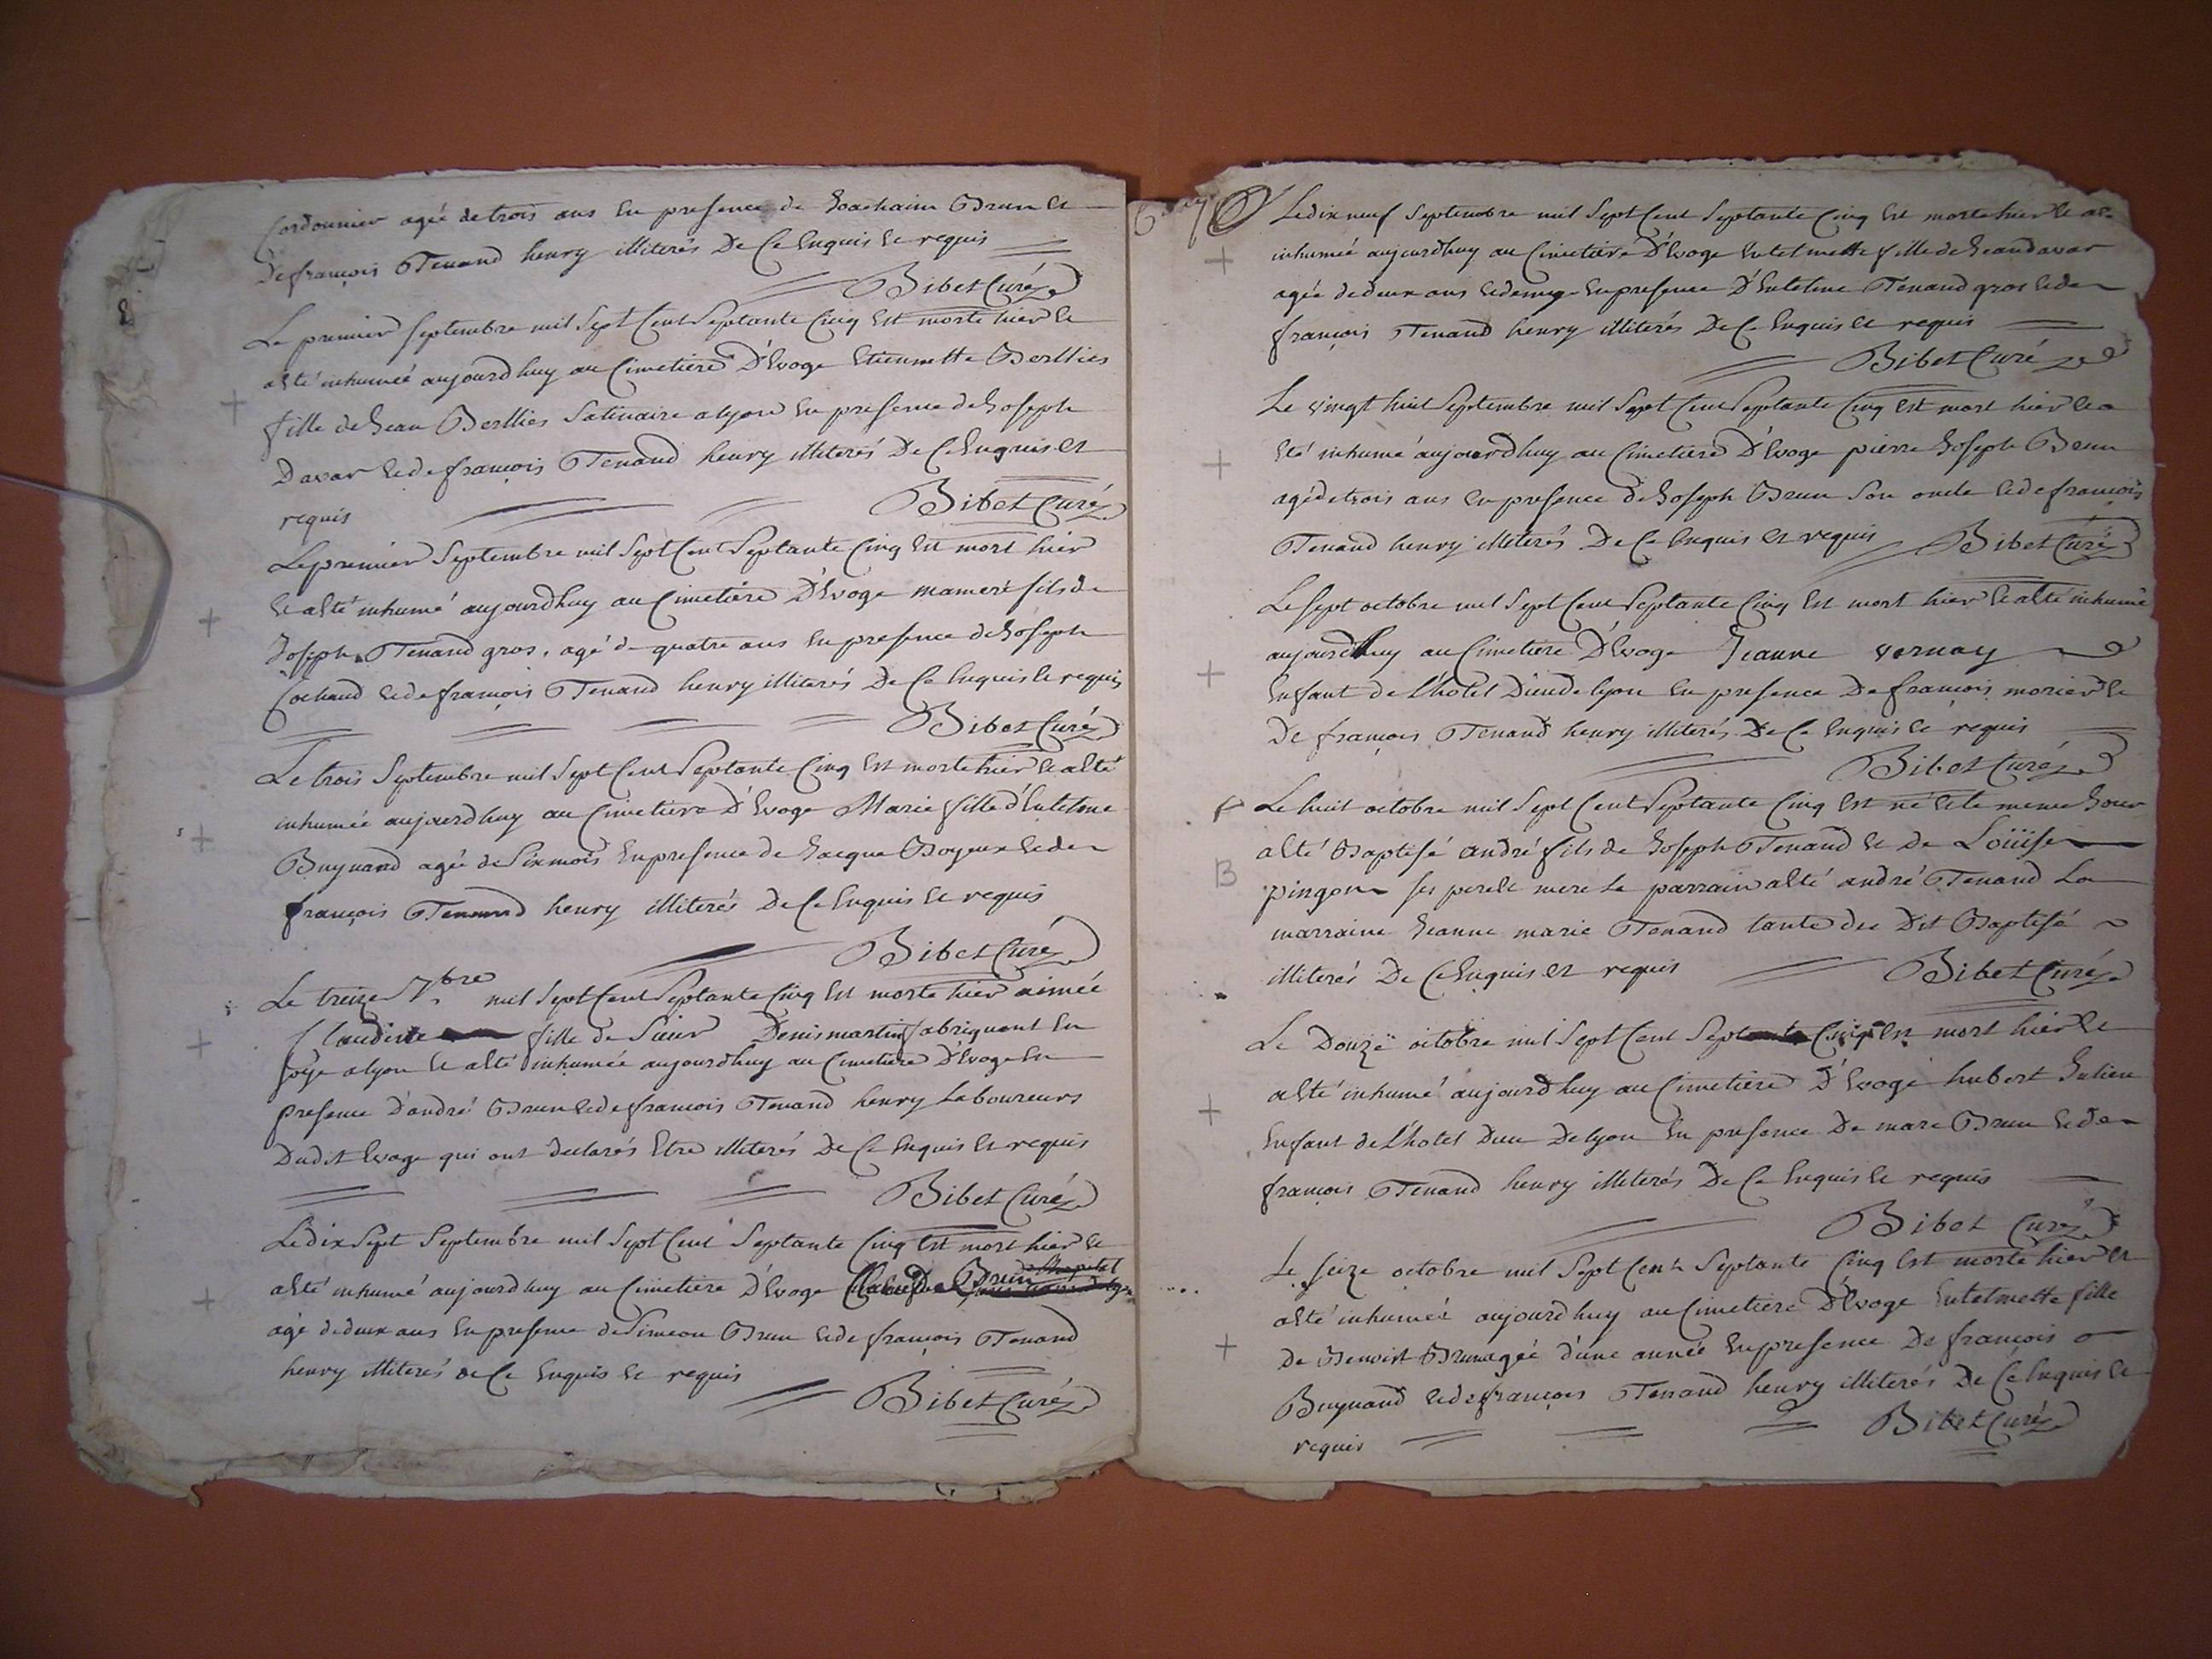 Cordonnier agée de trois ans En presence de Joachaim Brun Et
De françois Tenand henry illiterés De Ce Enquis Et requis
Bibet Curé
Le premier Septembre mil Sept Cent Septante Cinq Est morte hier Et
a Eté inhumée aujourdhuy au Cimetiere D'Evoge Etiennette Berllies
fille de Jean Berllies Satinaire a lyon En presence de Joseph
Davar Et de françois Tenand henry illiterés De Ce Enquis Et
requis
Bibet Curé
Le premier Septembre mil Sept Cent Septante Cinq Est mort hier
Et a Eté inhumé aujourdhuy au Cimetiere D'Evoge mamert fils de
Joseph Tenand gros, agé de quatre ans En presence de Joseph
Cochaud Et de françois Tenand henry illiterés De Ce Enquis Et requis
Bibet Curé
Le trois Septembre mil Sept Cent Septante Cinq Est morte hier Et a Eté
inhumée aujourdhuy au Cimetiere D'Evoge Marie fille d'Entelme
Buynand agée de Six mois En presence de Jacque Boyeux Et de
françois Tenand henry illiterés De Ce Enquis Et requis
Bibet Curé
Le treize 7bre mil Sept Cent Septante Cinq Est morte hier aimée
Claudine fille de Sieur Denis martin fabriquant En
soye a lyon Et a Eté inhumée aujourdhuy au Cimetiere D'Evoge En
presence D'andré Brun Et de françois Tenand henry Laboureurs
Dudit Evoge qui ont declarés Etre illiterés De Ce Enquis Et requis
Bibet Curé
Le dix Sept Septembre mil Sept Cent Septante Cinq Est mort hier Et
a Eté inhumé aujourdhuy au Cimetiere D'Evoge Claude Brun
agé de deux ans En presence de Simeon Brun Et de françois Tenand
henry illiterés de Ce Enquis Et requis
Bibet Curé
Le dix neuf Septembre mil Sept Cent Septante Cinq Est morte hier Et a Eté
inhumée aujourdhuy au Cimetiere D'Evoge Entelmette fille de Jean davar
agée de deux ans Et demy En presence D'Entelme Tenand gros Et de
françois Tenand henry illiterés De Ce Enquis Et requis
Bibet Curé
Le vingt huit Septembre mil Sept Cent Septante Cinq Est mort hier Et a
Eté inhumé aujourdhuy au Cimetiere D'Evoge pierre Joseph Brun
agé de trois ans En presence de Joseph Brun Son oncle Et de françois
Tenand henry illiterés De Ce Enquis Et requis Bibet Curé
Le Sept octobre mil Sept Cent Septante Cinq Est mort hier Et a Eté inhumé
aujourdhuy au Cimetiere D'Evoge Jeanne vernay
Enfant de L'hotel Dieu de lyon En presence De françois morier Et
De françois Tenand henry illiterés De Ce Enquis Et requis
Bibet Curé
Le huit octobre mil Sept Cent Septante Cinq Est né Et le meme Jour
B
a Eté Baptisé andré fils de Joseph Tenand Et De Loüise
pingon Ses pere Et mere Le parrain a Eté andré Tenand La
marraine Jeanne marie Tenand tante du Dit Baptisé
illiterés De Ce Enquis Et requis Bibet Curé
Le Douze octobre mil Sept Cent Septante Cinq Est mort hier Et
a Eté inhumé aujourdhuy au Cimetiere D'Evoge hubert Julien
Enfant de L'hotel Dieu De lyon En presence De marc Brun Et de
françois Tenand henry illiterés De Ce Enquis Et requis
Bibet Curé
Le Seize octobre mil Sept Cent Septante Cinq Est morte hier Et
a Eté inhumée aujourdhuy au Cimetiere D'Evoge Entelmette fille
De Benoist Brun agée d'une année En presence De françois
Buynand Et de françois Tenand henry illiterés De Ce Enquis Et
requis Bibet Curé